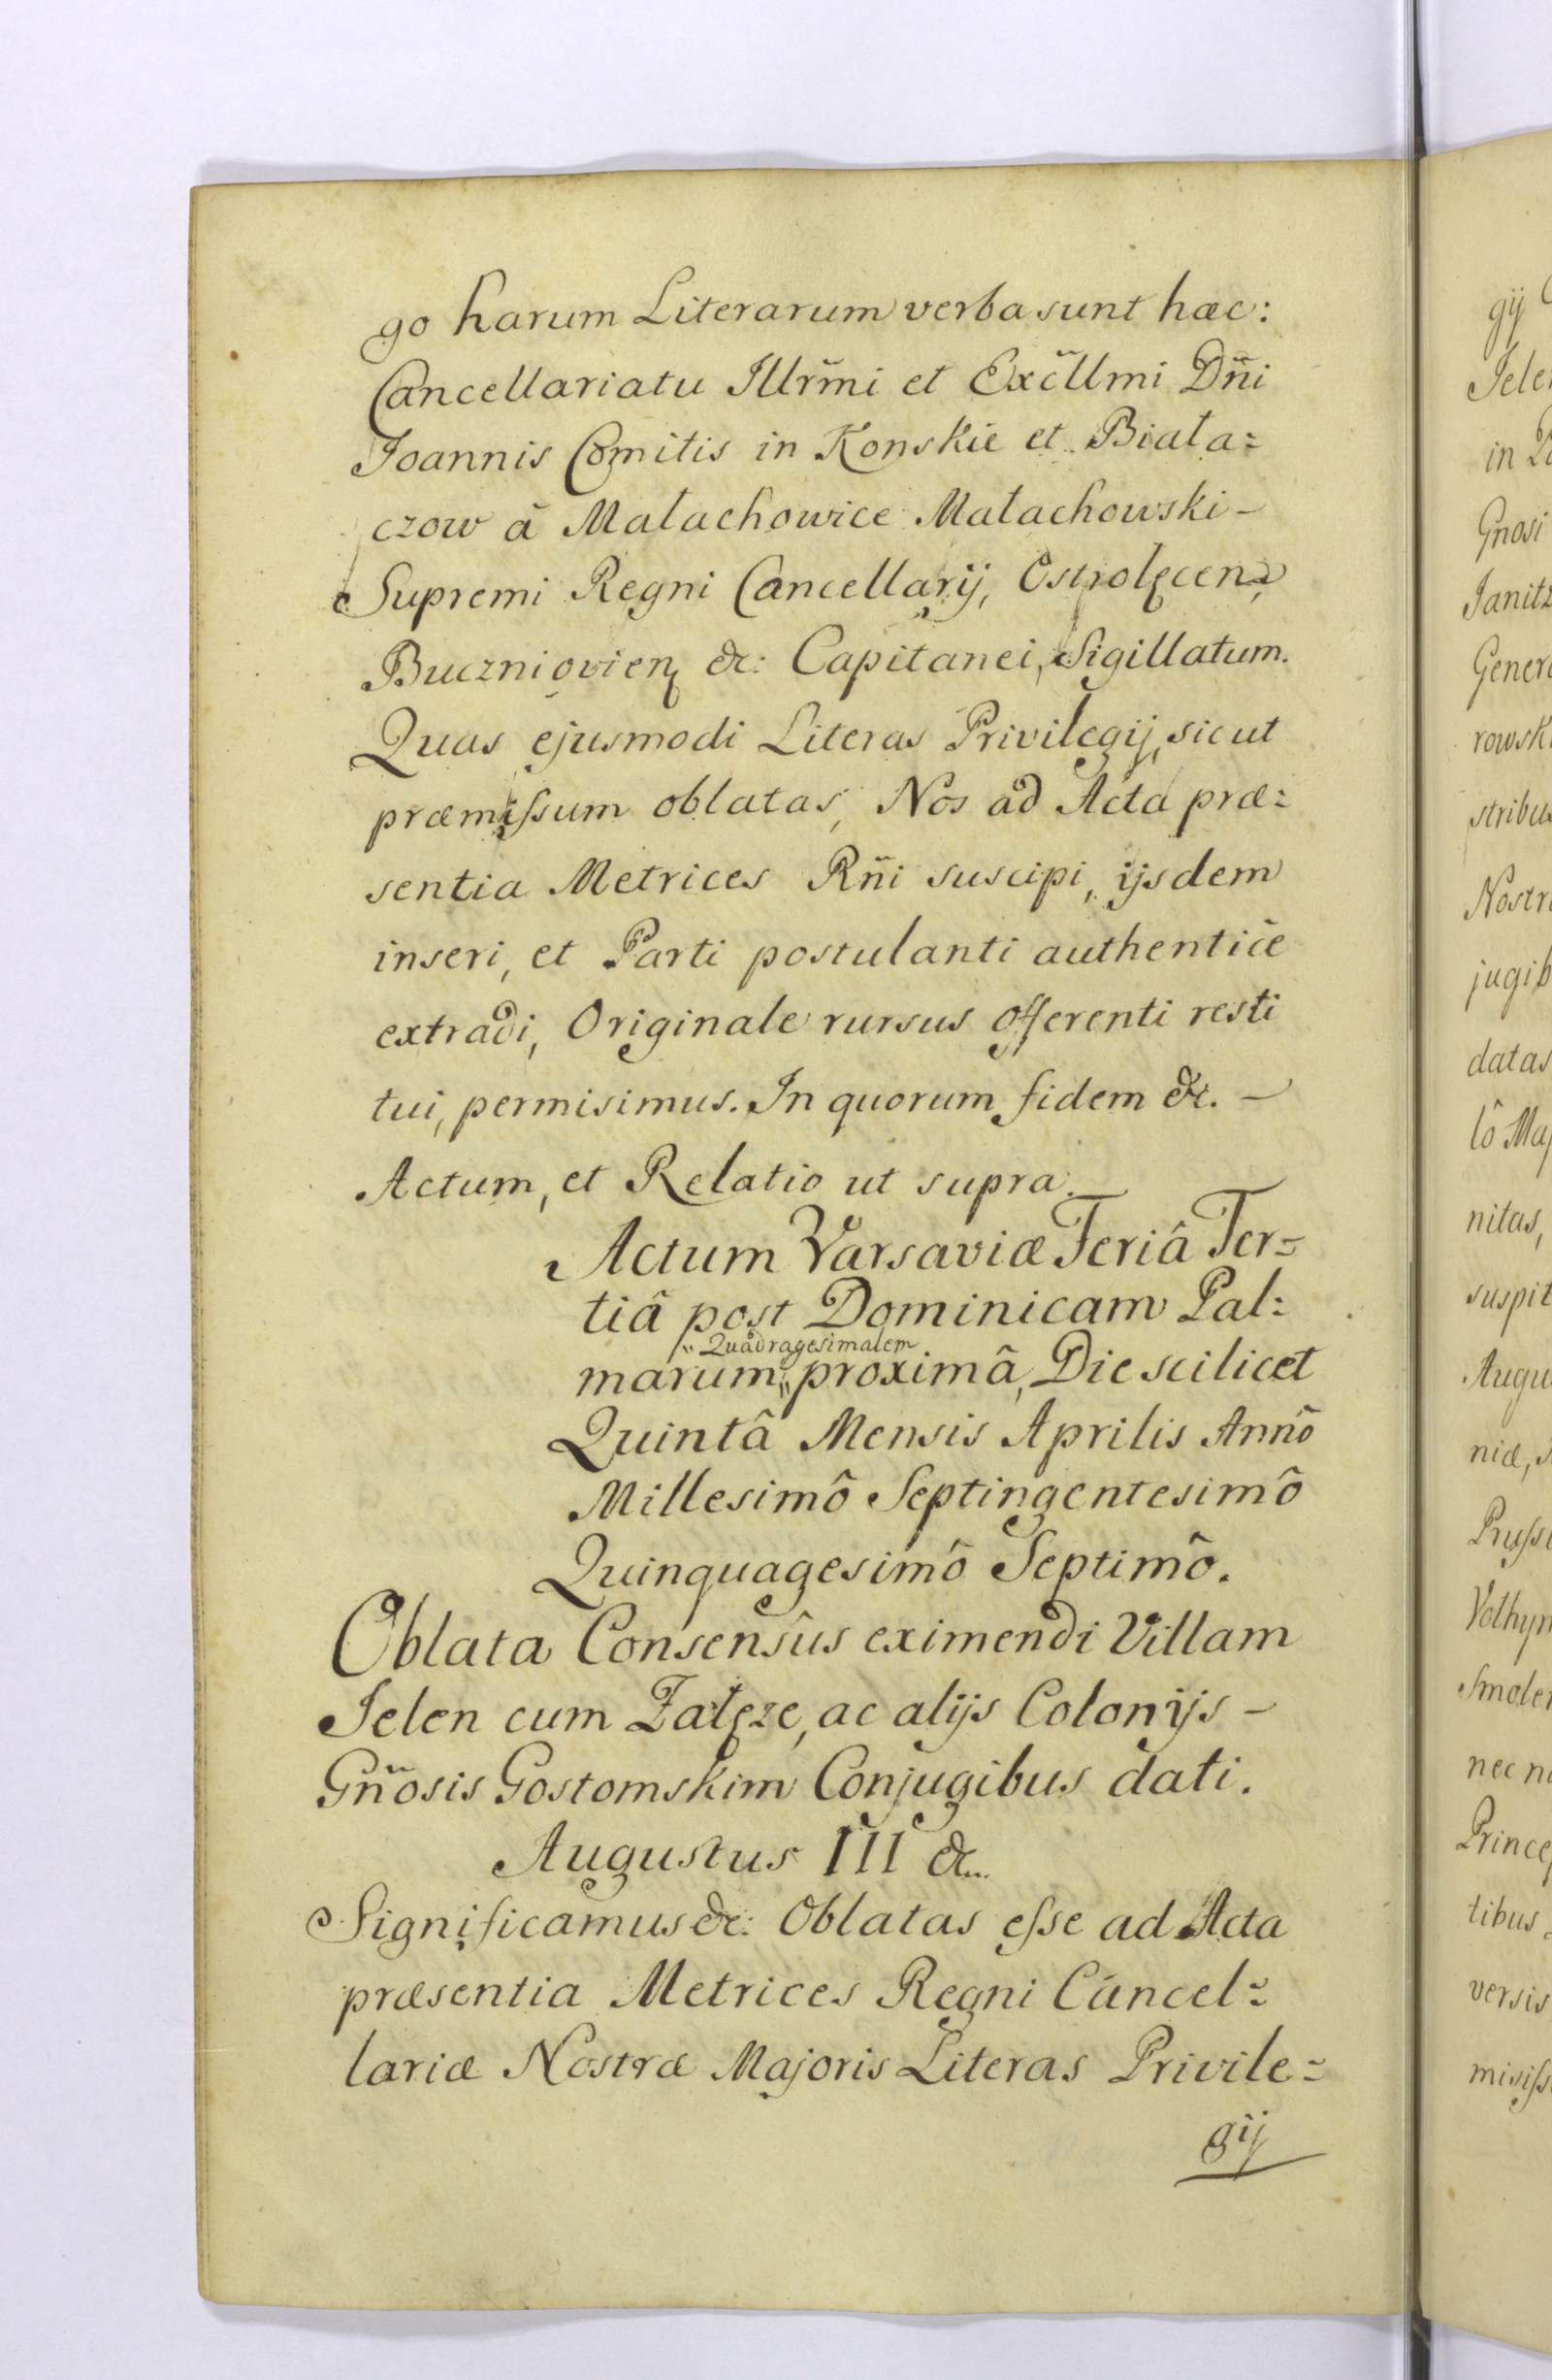 go harum Literarum verba sunt hæc:
Cancellariatu Illr̃mi et Exc̃llmi Dñi
Joannis Comitis in Konskie et Biała=
czow â Małachowice Małachowski -
Supremi Regni Cancellarij, Ostrolęcen,
Buczniovien &c: Capitanei, Sigillatum.
Quas ejusmodi Literas Privilegij, sicut
præmissum oblatas, Nos ad Acta præ=
sentia Metrices Rñi suscipi, ijsdem
inseri, et Parti postulanti authenticè
extradi, Originale rursus offerenti resti
tui, permisimus. In quorum fidem &c. -
Actum, et Relatio ut supra.
Actum Varsaviæ Feriâ Ter=
tiâ post Dominicam Pal=
"Quadragesimalem
marum" proximâ, Die scilicet
Quintâ Mensis Aprilis Annô
Millesimô Septingentesimô
Quinquagesimô Septimô.
Oblata Consensûs eximendi Villam
Jelen cum Załęze, ac alijs Colonijs -
Gñosis Gostomskim Conjugibus dati.
Augustus III &c..
Significamus &c: Oblatas esse ad Acta
præsentia Metrices Regni Cancel=
lariæ Nostræ Majoris Literas Privile=
gij
gij
Jele
in
Gnosi
Janitz
Genera
rowsk
stribus
Nostr
jugib
datas
lô Maj
nitas,
suspit
Augu
niæ,
Prussi
Volhyn
Smolen
nec n
Princep
tibus
versis
misiss